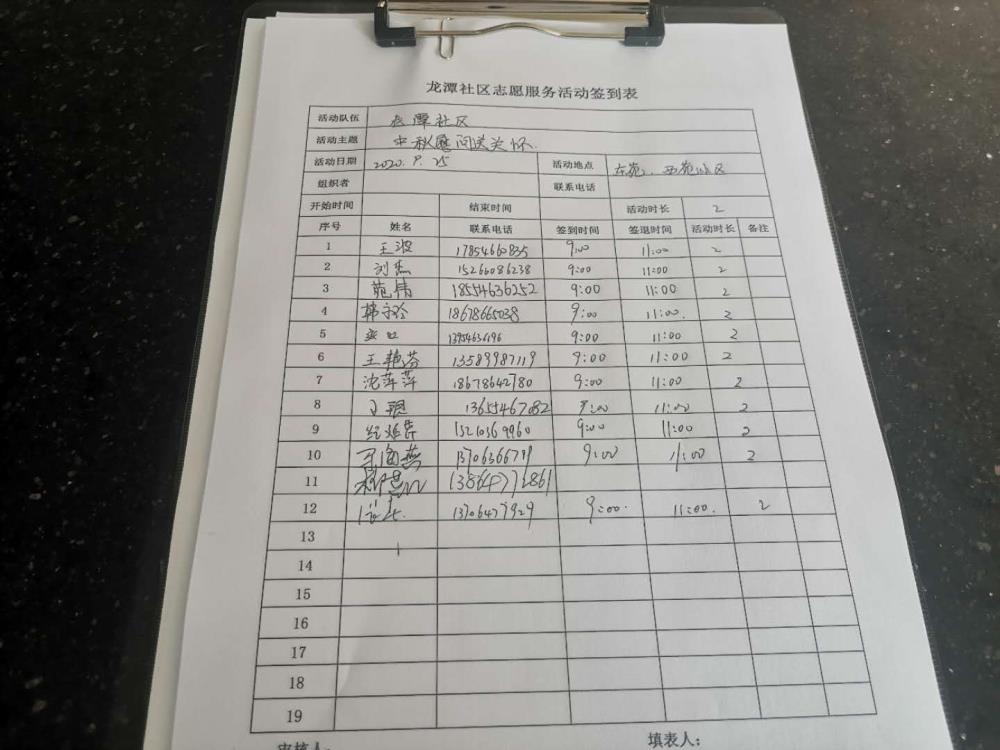 龙潭社区志愿服务活动签到表
活动队伍 龙潭社区
活动主题 中秋慰问送关怀.
活动日期 2020.9.25 活动地点 东苑、西苑小区
组织者 联系电话
开始时间 结束时间 活动时长 2
序号 姓名 联系电话 签到时间 签退时间 活动时长 备注
1 王波 17854660835 9:00 11:00 2
2 刘杰 15266086238 9:00 11:00 2
3 范伟 18554636252 9:00 11:00 2
4 韩守玲 18678665038 9:00 11:00. 2
5 9:00 11:00 2
6 王艳芬 13589987119 9:00 11:00 2
7 沈萍萍 18678642780 9:00 11:00 2
8 13655467082 9:00 11:00 2
9 13210369960 9:00 11:00 2
10 9:00 11:00 2
11
12 13706477929 9:00. 11:00. 2
13
14
15
16
17
18
19
审核人: 填表人: